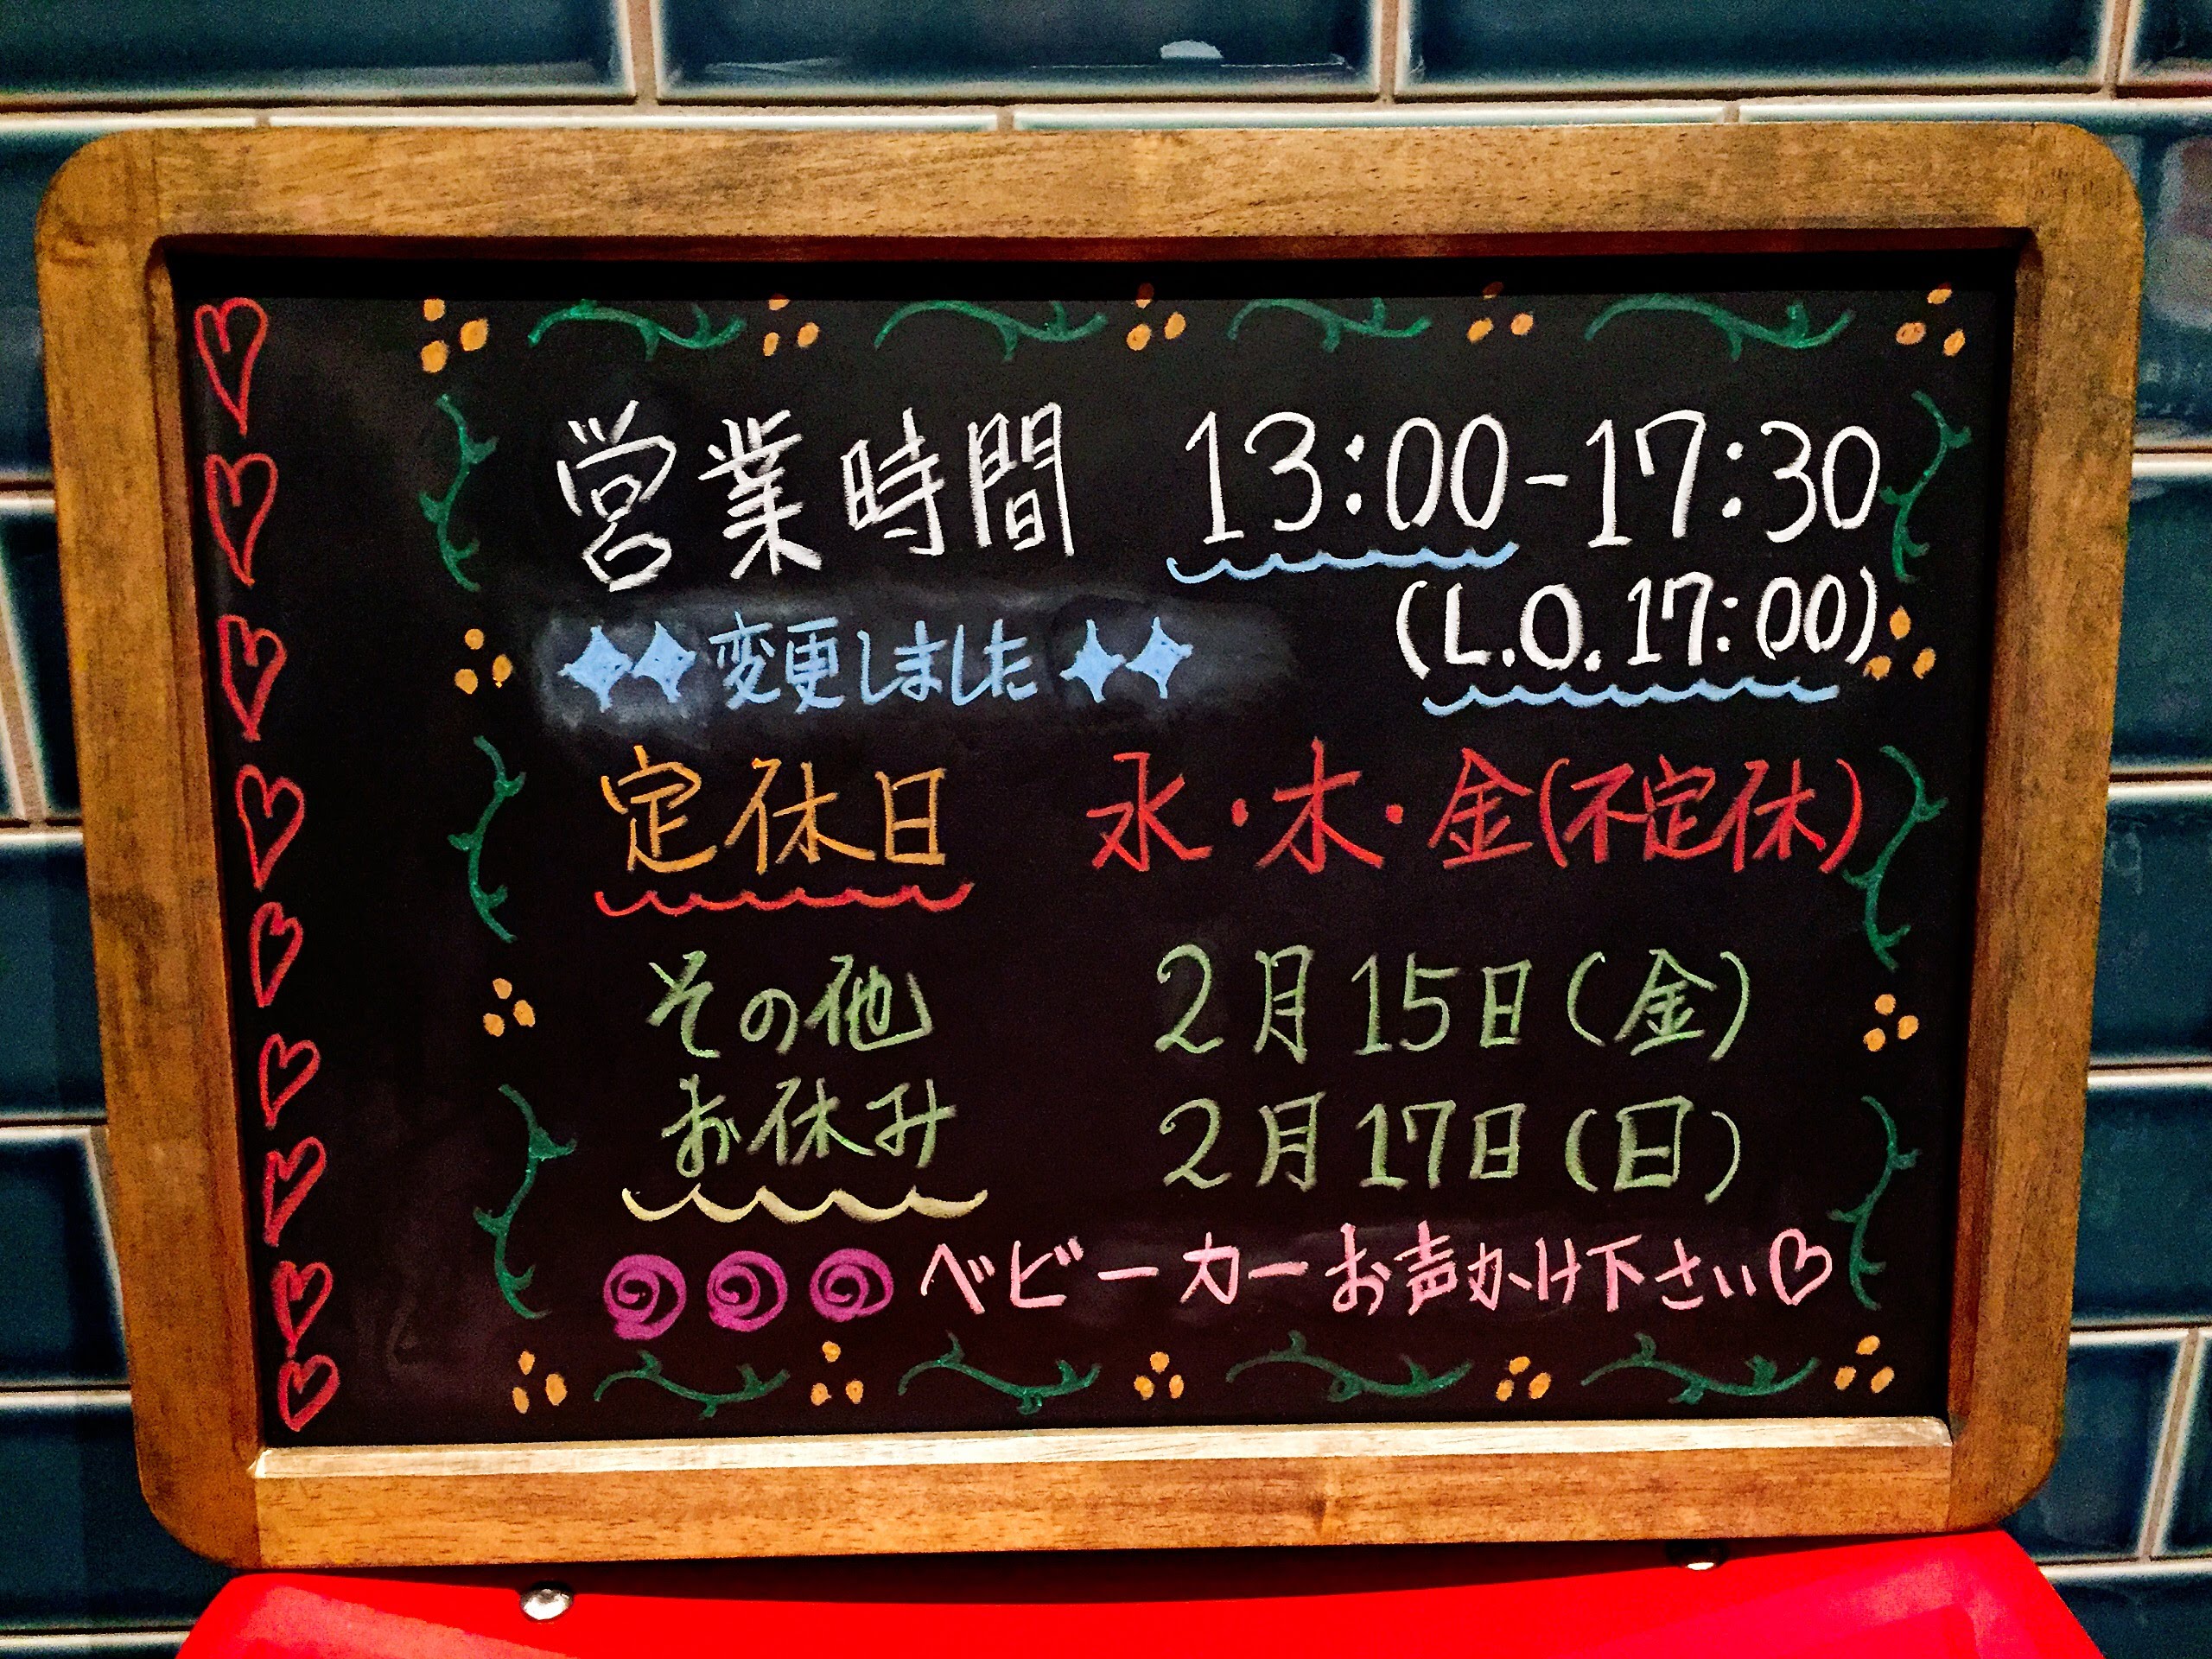 営業時間 13:00-17:30
(L.O.17:00)
変更しました
定休日 水・木・金(不定休)
その他 2月15日(金)
お休み 2月17日(日)
ベビーカーお声かけ下さい♡